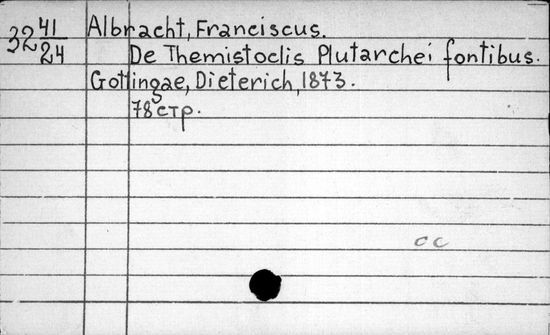 32 41/24
Albracht, Franciscus.
De Themistoclis Plutarchei fontibus.
Gottingae, Dieterich, 1873.
78 стр.
cc